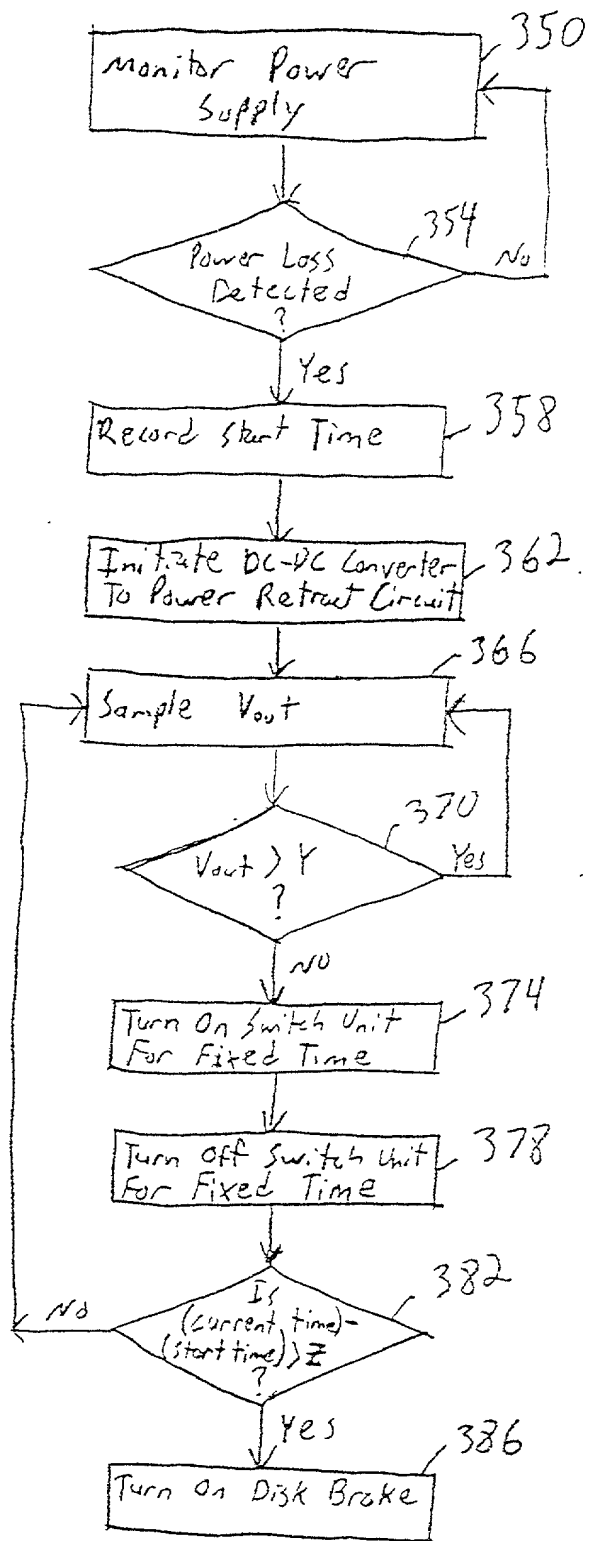 350
Monitor Power
Supply
354
Power Loss
Detected
?
No
Yes
Record Start Time
358
Initiate DC-DC Converter
To Power Retract Circuit
362
366
Sample Vout
370
Vout > Y
?
Yes
NO
374
Turn On Switch Unit
For Fixed Time
378
Turn Off Switch Unit
For Fixed Time
382
Is
(current time)-
(start time) > Z
?
NO
Yes
386
Turn On Disk Brake